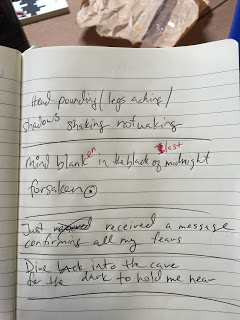 Head pounding/legs aching/
shadows shaking not waking
Mind blanken in the black of midnight
last
forsaken.
Just received a message
confirming all my fears
Dive back into the cave
for the dark to hold me near